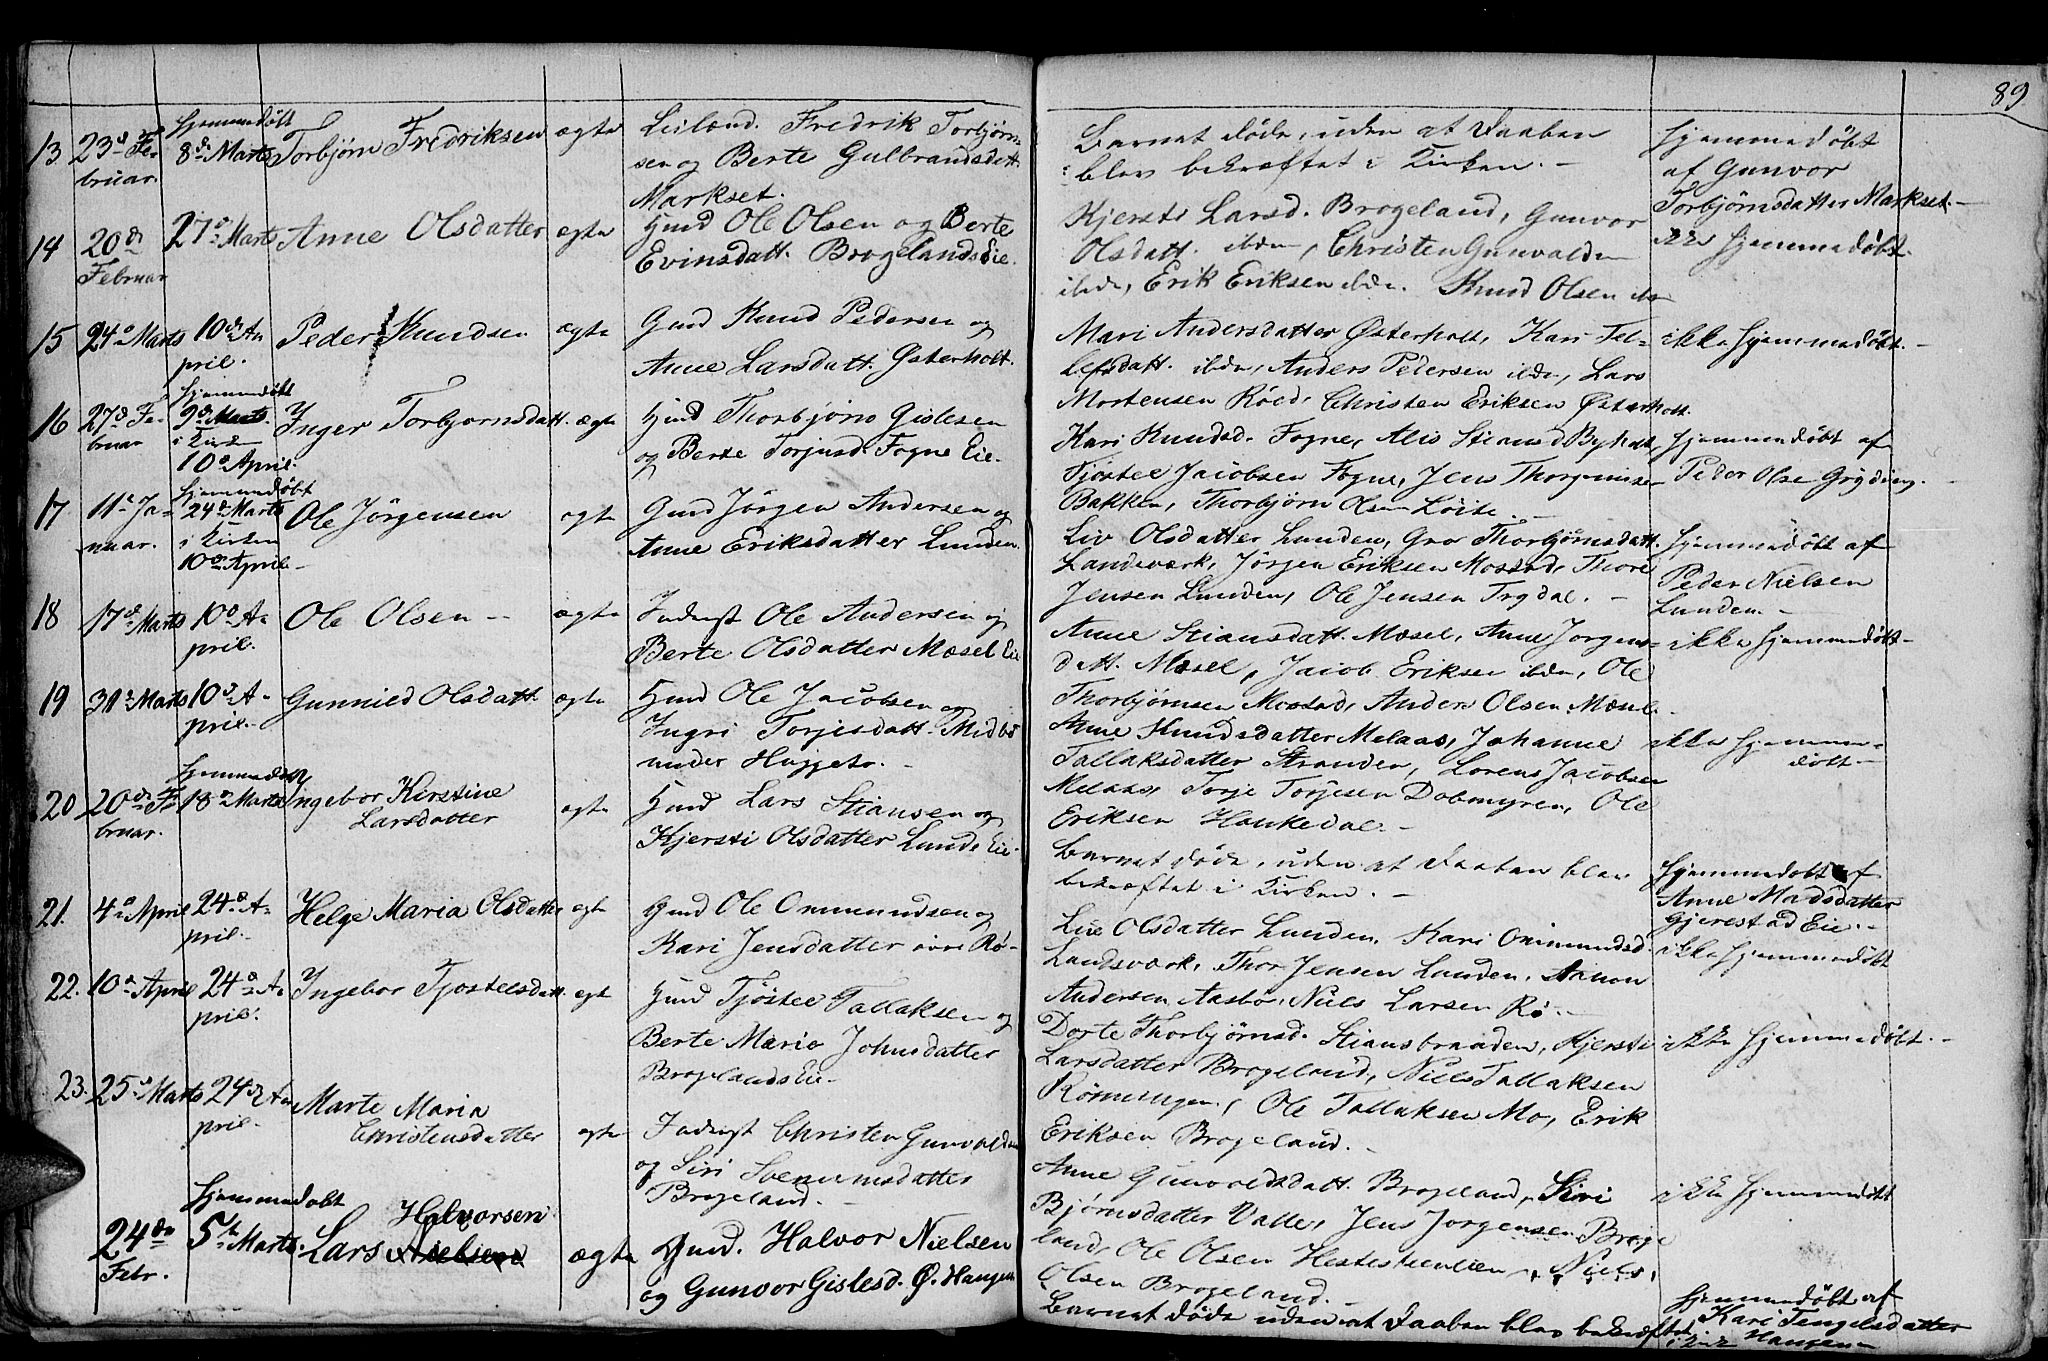 89
13
23d Fe-
bruar.
hjemmedøbt
8d Marts
Torbjørn Fredriksen
ægte
Leilænd. Fredrik Torbjørn-
sen og Berte Gulbrandsdatt.
Markset.
Barnet døde, uden at Daaben
blev bekræftet i Kirken. -
hjemmedøbt
af Gunvor
Torbjørnsdatter Markset. -
14
20de
Februar
27d Marts
Anne Olsdatter
ægte
Hmd Ole Olsen og Berte
Evinsdatt. Brogelands Eie.
Kjersti Larsd. Brogeland, Gunvor
Olsdatt. ibdn, Christen Gunvalds
ibdn, Erik Eriksen ibdn. Knud Olsen ibdn
ikke hjemmedøbt.
15
24d Marts
10de A-
pril.
Peder Knudsen
ægte
Gmd Knud Pedersen og
Anne Larsdatt. Østerholt.
Mari Andersdatter Østerholt, Kari Tel-
lefsdatt. ibdn, Anders Pedersen ibdn, Lars
Mortensen Röed, Christen Eriksen Østerholt.
ikke hjemmedøbt. -
16
27d Fe-
bruar
hjemmedøbt
9de Marts.
i Kirken
10d April.
Inger Torbjørnsdatt.
ægte
Hmd Thorbjørn Gislesen
og Berte Torjusd. Fogne Eie.
Kari Knudsd. Fogne, Alis Stiansd
Tjostel Jacobsen Fogne, Jens Thorgrimsen
Bakken, Thorbjørn Olsen Löite. -
hjemmedøbt af
Peder Olse Gryting. -
17
11d Ja-
nuar.
hjemmedøbt
24d Marts
i Kirken
10d April.
Ole Jörgensen
ægte
Gmd Jörgen Andersen og
Anne Eriksdatter Lunden.
Liv Olsdatter Lunden, Gro Thorbjørnsdatt.
Landsværk, Jörgen Eriksen Mostad, Thore
Jensen Lunden, Ole Jensen Trydal. -
hjemmedøbt af
Peder Nielsen
Lunden. -
18
17d Marts
10d A-
pril.
Ole Olsen -
ægte
Inderst Ole Andersen og
Berte Olsdatter Mæsel Eie
Anne Stiansdatt. Mæsel, Anne Jorgens-
datt. Mæsel, Jacob Eriksen ibdn, Ole
Thorbjørnsen Mostad, Anders Olsen Mæsel.
ikke hjemmedøbt -
19
31d Marts
10d A-
pril. -
Gunnild Olsdatt.
ægte
Hmd Ole Jacobsen og
Ingri Torjesdatt. Midbö
under . -
Anne Knudsdatter Melaas, Johanne
Tallaksdatter Stranden, Lorens Jacobsen
Melaas, Torje Torjesen Dobmyren, Ole
Eriksen Haukedal. -
ikke hjemme-
döbt -
20
20de Fe-
bruar.
hjemmedøbt
18d Marts
Ingebor Kirstine
Larsdatter
ægte
Hmd Lars Stiansen og
Kjersti Olsdatter Lunds Eie.
Barnet døde, uden at Daaben blev
bekræftet i Kirken. -
Hjemmedøbt af
Anne Madsdatter
Gjerestad Eie. -
21.
4d April
24d A-
pril. -
Helge Maria Olsdatter
ægte
Gmd Ole Ommundsen og
Kari Jensdatter övre Rö-
Live Olsdatter Lunden, Kari Ommundsd.
Landsværk, Thor Jensen Lunden, Aanon
Andersen Aasbø, Niels Larsen Rö. -
ikke hjemmedøbt
22.
10d April
24d A-
pril.
Ingebor Tjostelsdatt.
egte
Hmd Tjöstel Tallaksen og
Berte Maria Johnsdatter
Brogelands Eie. -
Dorte Thorbjørnsd. Stiansbraaden, Kjersti
Larsdatter Brogeland, Niels Tallaksen
Rönningen, Ole Tallaksen Mo, Erik
Eriksen Brogeland. -
ikke hjemmedøbt. -
23.
25d Marts
24de A-
pril. -
Marte Maria
Christensdatter
egte
Inderst Christen Gunvalds
og Siri Svenumsdatter
Brogeland. -
Anne Gunvaldsdatt. Brogeland, Siri
Bjørnsdatter Valle, Jens Jorgensen Broge
land, Ole Olsen , Niels
Olsen Brogeland. -
ikke hjemmedøbt
24de
Febr.
hjemmedøbt
5te Marts.
Halvorsen
Lars Nielsen
ægte
Gmd. Halvor Nielsen
og Gunvor Gislesd. Ø. Haugen
Barnet døde uden at Daaben blev bekræftet
i Kirk
hjemmedøbt af
Kari Tengelsdatter
Haugen -